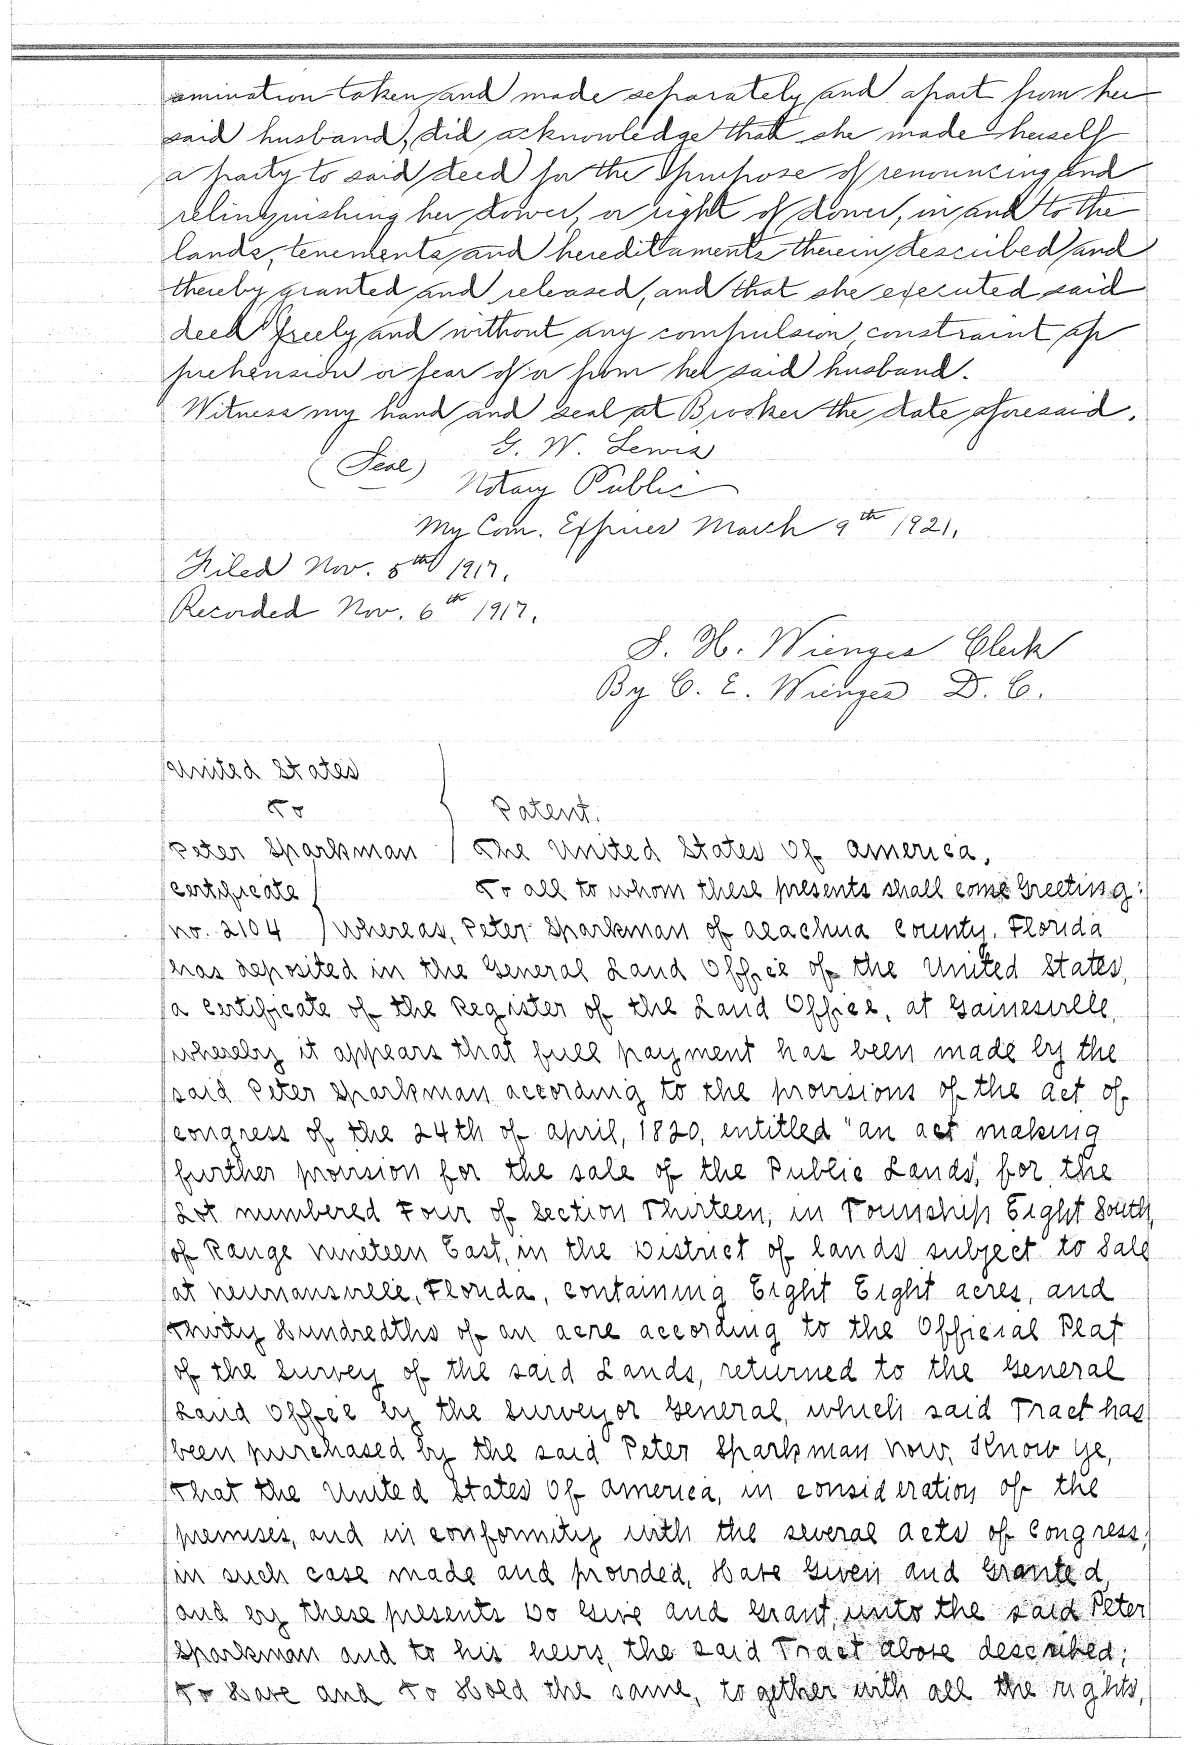 amination taken and made separately and apart from her
said husband, did acknowledge that she made herself
a party to said deed for the purpose of renouncing and
relinquishing her dower, or right of dower, in and to the
lands, tenements and hereditaments therein described and
thereby granted and released, and that she executed said
deed freely and without any compulsion, constraint ap
prehension or fear of or from her said husband.
Witness my hand and seal at Brooker the date aforesaid.
G. W. Lewis
(Seal)
Notary Public
My Com. Expires March 9th 1921.
Filed Nov. 5th 1917.
Recorded Nov. 6th 1917.
S. H. Wienges Clerk
By C. E. Wienges D. C.
United States
To
Patent.
Peter Sparkman The United States Of America,
Certificate To all to whom these presents shall come Greeting:
no. 2104 Whereas, Peter Sparkman of Alachua County, Florida
has deposited in the General Land Office of the United States,
a certificate of the Register of the Land Office, at Gainesville,
whereby it appears that full payment has been made by the
said Peter Sparkman according to the provisions of the Act of
Congress of the 24th of April, 1820, entitled "An act making
further provision for the sale of the Public Lands", for the
Lot numbered Four of Section Thirteen, in Township Eight South,
of Range nineteen East, in the District of lands subject to Sale
at Newnansville, Florida, containing Eight Eight acres, and
Thirty Hundredths of an acre according to the Official Plat
of the Survey of the said Lands, returned to the General
Land Office by the Surveyor General, which said Tract has
been purchased by the said Peter Sparkman Now, Know Ye,
That the United States Of America, in consideration of the
premises, and in conformity with the several acts of Congress,
in such case made and provided, Have Given and Granted,
and by these presents Do Give and Grant, unto the said Peter
Sparkman and to his heirs, the said Tract above described;
To Have and To Hold the same, together with all the rights,